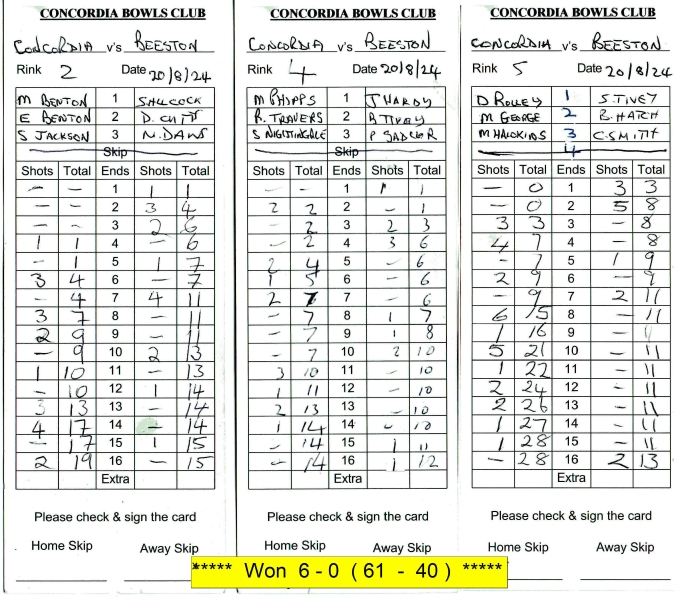 CONCORDIA BOWLS CLUB
CONCORDIA v's BEESTON
Rink 2 Date 20/8/24
M BENTON 1 SHILCOCK
E BENTON 2 D.
S JACKSON 3 N.DAWS
Skip
Shots Total Ends Shots Total
– – 1 1 1
– – 2 3 4
– – 3 2 6
1 1 4 – 6
– 1 5 1 7
3 4 6 – 7
– 4 7 4 11
3 7 8 – 11
2 9 9 – 11
– 9 10 2 13
1 10 11 – 13
– 10 12 1 14
3 13 13 – 14
4 17 14 – 14
– 17 15 1 15
2 19 16 – 15
Extra
Please check & sign the card
Home Skip Away Skip
CONCORDIA BOWLS CLUB
CONCORDIA v's BEESTON
Rink 4 Date 20/8/24
M PHIPPS 1 J HARDY
R. TRAVERS 2 R TIVEY
S NIGHTINGALE 3 P SADLER
Skip
Shots Total Ends Shots Total
– – 1 1 1
2 2 2 – 1
– 2 3 2 3
– 2 4 3 6
2 4 5 – 6
1 5 6 – 6
2 7 7 – 6
– 7 8 1 7
– 7 9 1 8
– 7 10 2 10
3 10 11 – 10
1 11 12 – 10
2 13 13 – 10
1 14 14 – 10
– 14 15 1 11
– 14 16 1 12
Extra
Please check & sign the card
Home Skip Away Skip
CONCORDIA BOWLS CLUB
CONCORDIA v's BEESTON
Rink 5 Date 20/8/24
D ROLLEY 1 S.TIVEY
M GEORGE 2 B.HATCH
M HAWKINS 3 C.SMITH
4
Shots Total Ends Shots Total
– 0 1 3 3
– 0 2 5 8
3 3 3 – 8
4 7 4 – 8
– 7 5 1 9
2 9 6 – 9
– 9 7 2 11
6 15 8 – 11
1 16 9 – 11
5 21 10 – 11
1 22 11 – 11
2 24 12 – 11
2 26 13 – 11
1 27 14 – 11
1 28 15 – 11
– 28 16 2 13
Extra
Please check & sign the card
Home Skip Away Skip
***** Won 6 - 0 ( 61 - 40 ) *****